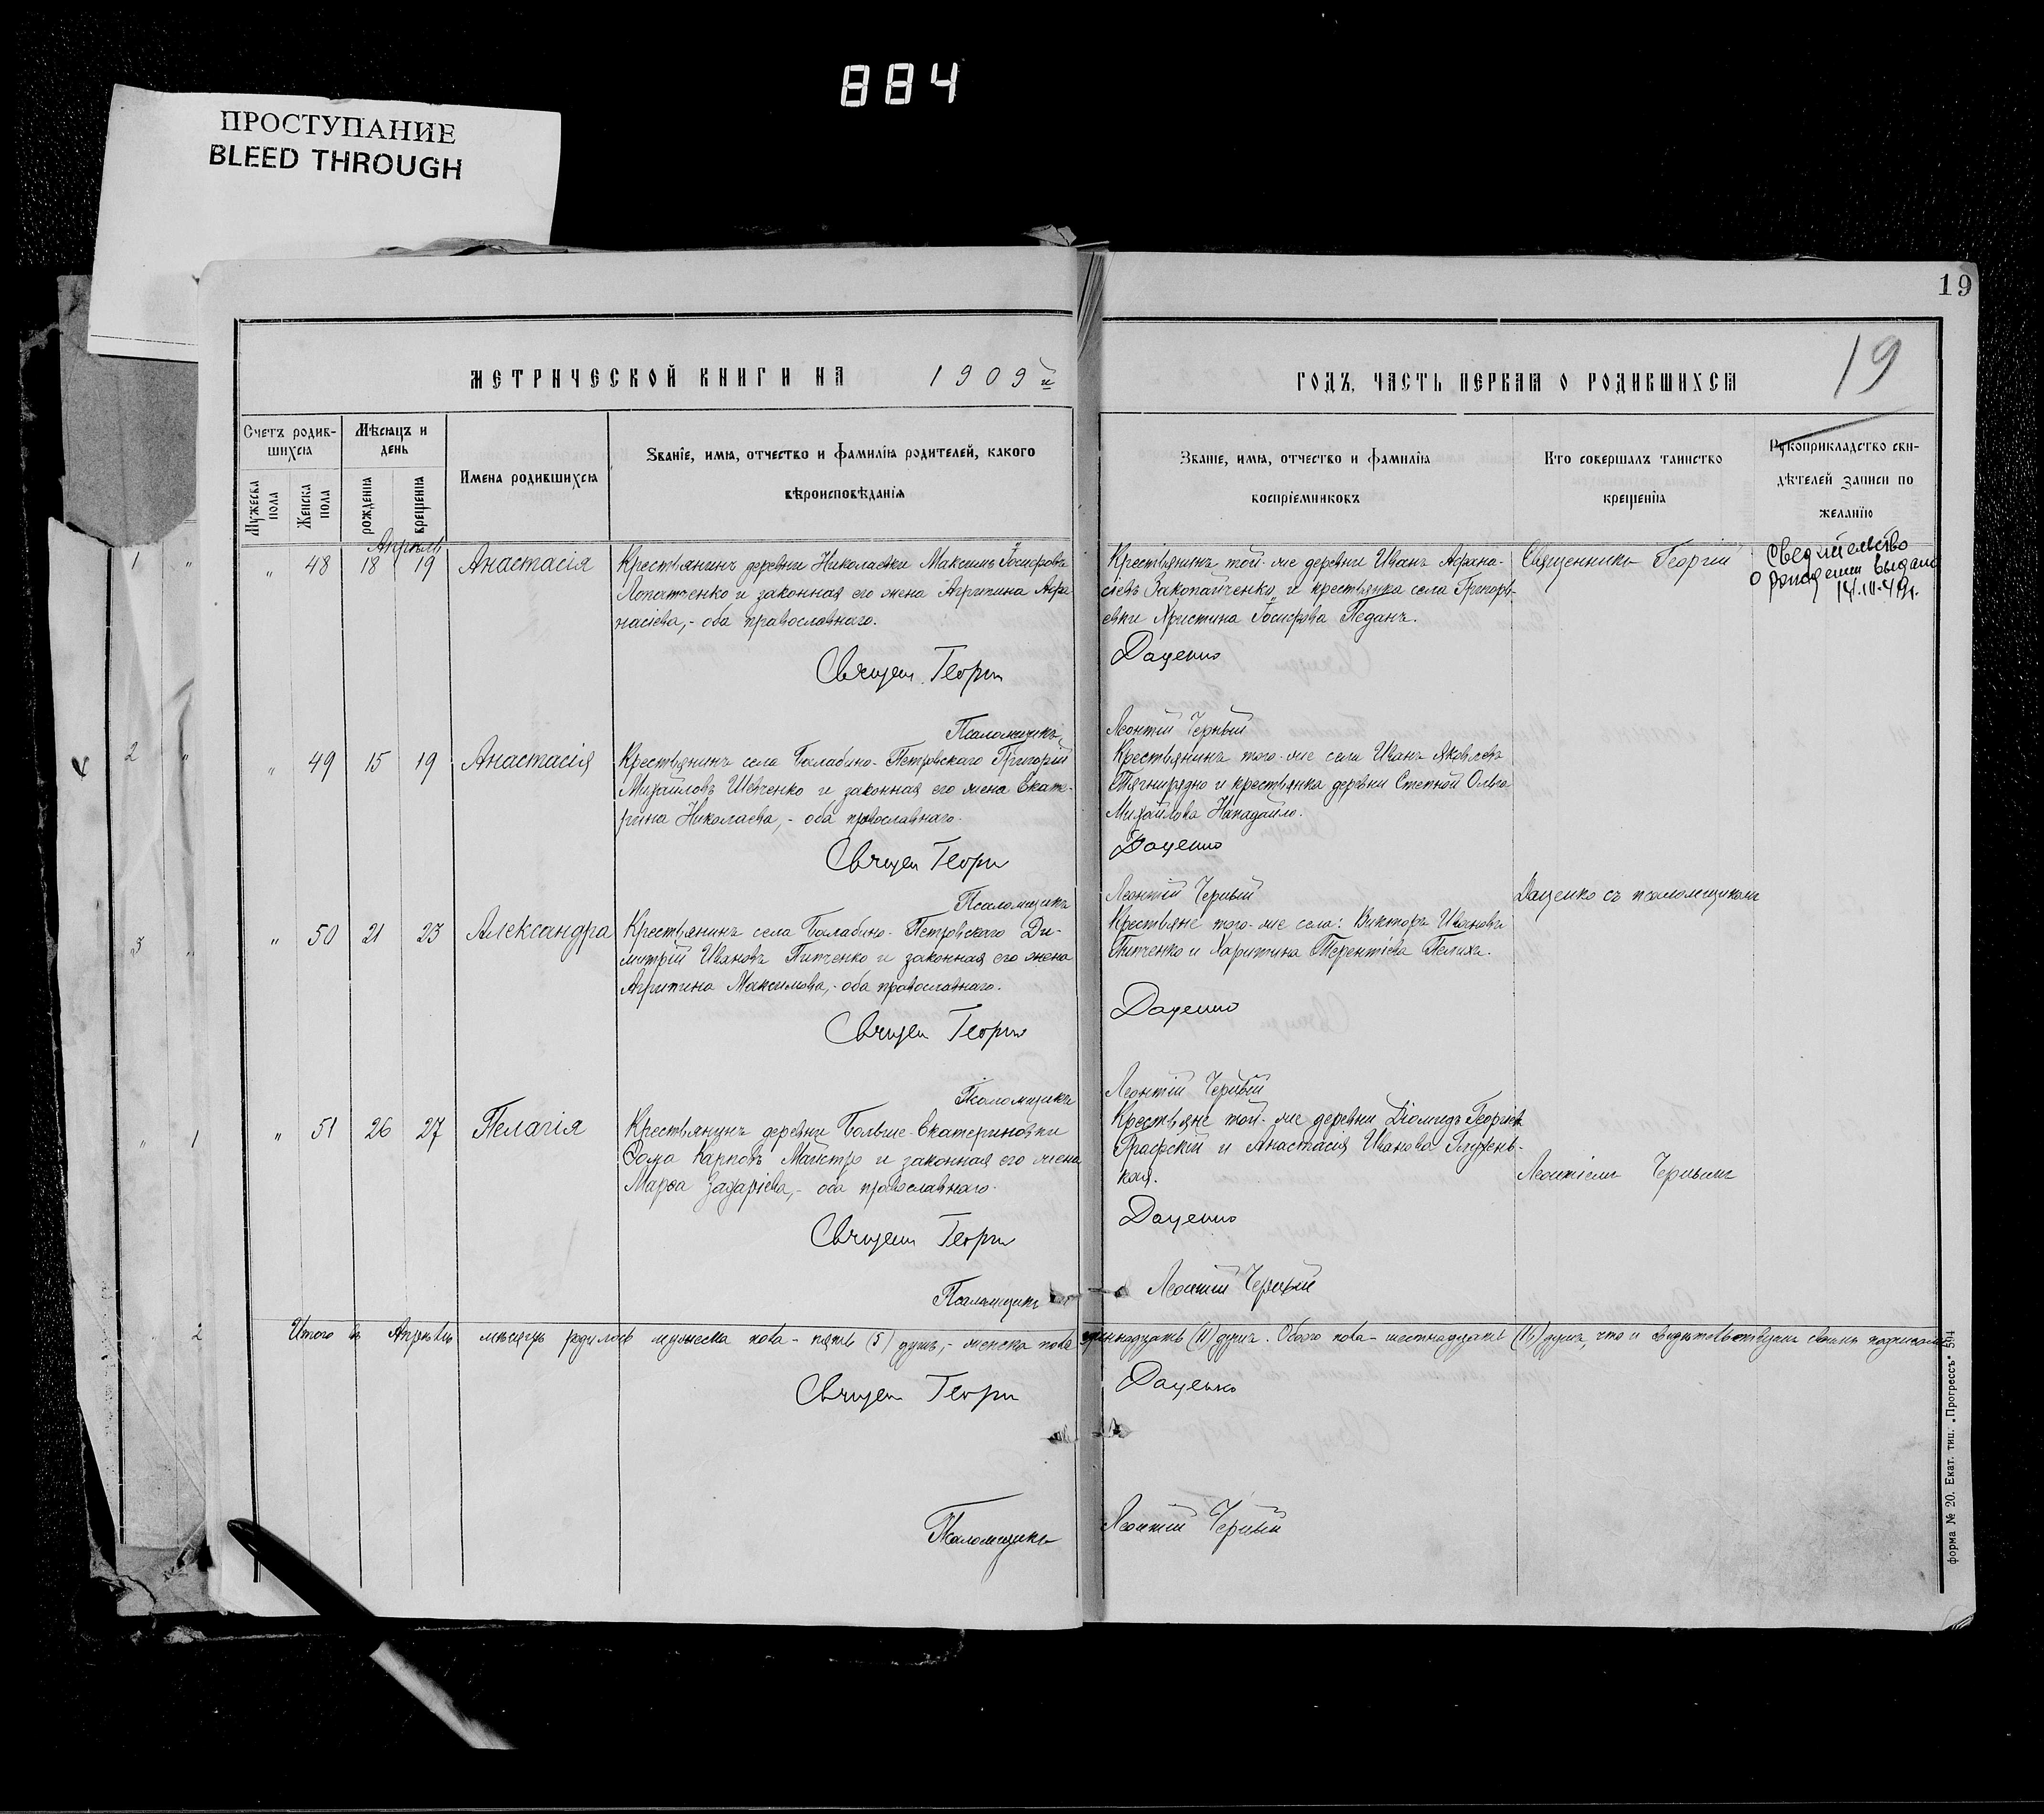 884
ПРОСТУПАНИЕ
BLEED THROUGH
19
19
МЕТРИЧЕСКОЙ КНИГИ НА 1909й
ГОДЪ, ЧАСТЬ ПЕРВАЯ О РОДИВШИХСЯ
Счетъ родив-
шихся
Мужеска пола
Женска пола
Мѣсяцъ и
день
рожденія
крещенія
Имена родившихся
Званіе, имя, отчество и фамилія родителей, какого
вѣроисповѣданія
Званіе, имя, отчество и фамилія
воспріемниковъ
Кто совершалъ таинство
крещенія
Рукоприкладство сви-
дѣтелей записи по
желанію
Апрѣль
" 48 18 19 Анастасія
Крестьянинъ деревни Николаевки Максимъ Іосифовъ
Лопатченко и законная его жена Агрипина Афа-
насіева,- оба православнаго.
Священ. Георги
Псаломщикъ
Крестьянинъ той-же деревни Иванъ Афана-
сіевъ Закопайченко и крестьянка села Григорь-
евки Христина Іосифова Педанъ.
Даценко
Леонтій Черный
Священникъ Георгій
Свидительство
о рождении выдано
" 49 15 19 Анастасія
Крестьянинъ села Балабино-Петровскаго Григорій
Михайловъ Шевченко и законная его жена Екате-
рина Николаева,- оба православнаго.
Священ Георги
Псаломщикъ
Крестьянинъ того-же села Иванъ Яковлевъ
Тягнирядно и крестьянка деревни Степной Ольга
Михайлова Нападайло.
Даценко
Леонтій Черный
Даценко съ псаломщикомъ
" 50 21 23 Александра
Крестьянинъ села Балабино-Петровскаго Ди-
митрій Ивановъ Питченко и законная его жена
Агрипина Максимова,- оба православнаго.
Священ Георги
Псаломщикъ
Крестьяне того-же села: Викторъ Ивановъ
Питченко и Харитина Терентіева Пелихъ.
Даценко
Леонтій Черный
" 51 26 27 Пелагія
Крестьянинъ деревни Больше-Екатериновки
Фома Карповъ Майстро и законная его жена
Марфа Захаріева,- оба православнаго.
Священ Георги
Псаломщикъ
Крестьяне той-же деревни Діомидъ Георгіевъ
Графскій и Анастасія Иванова
кая.
Даценко
Леонтій Черный
Леонтіемъ Чернымъ
Итого въ Апрѣлѣ мѣсяцѣ родилось мужеска пола - пять (5) душъ,- женска пола одиннадцать (11) душъ. Обоего пола - шестнадцать (16) душъ, что и свидѣтельствуемъ своимъ подписомъ
Священ Георги
Даценко
Псаломщикъ
Леонтій Черный
форма № 20. Екат. тип. „Прогрессъ" 594
1 "
2 "
3 "
" 1
2